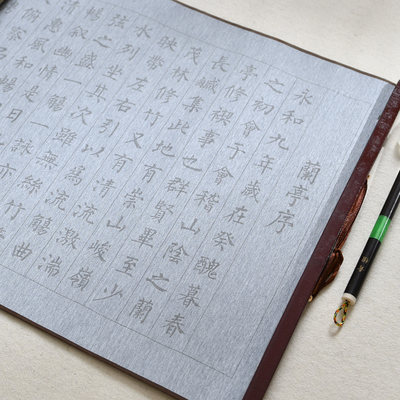 蘭亭序
永和九年歲在癸醜暮春
之初會于會稽山陰之蘭
亭修禊事也群賢畢至少
長鹹集此地有崇山峻嶺
茂林修竹又有清流激湍
映帶左右引以為流觴曲
水列坐其次雖無絲竹
弦之盛一觴一詠亦
暢敘幽情是日
清惠風和暢
俯察